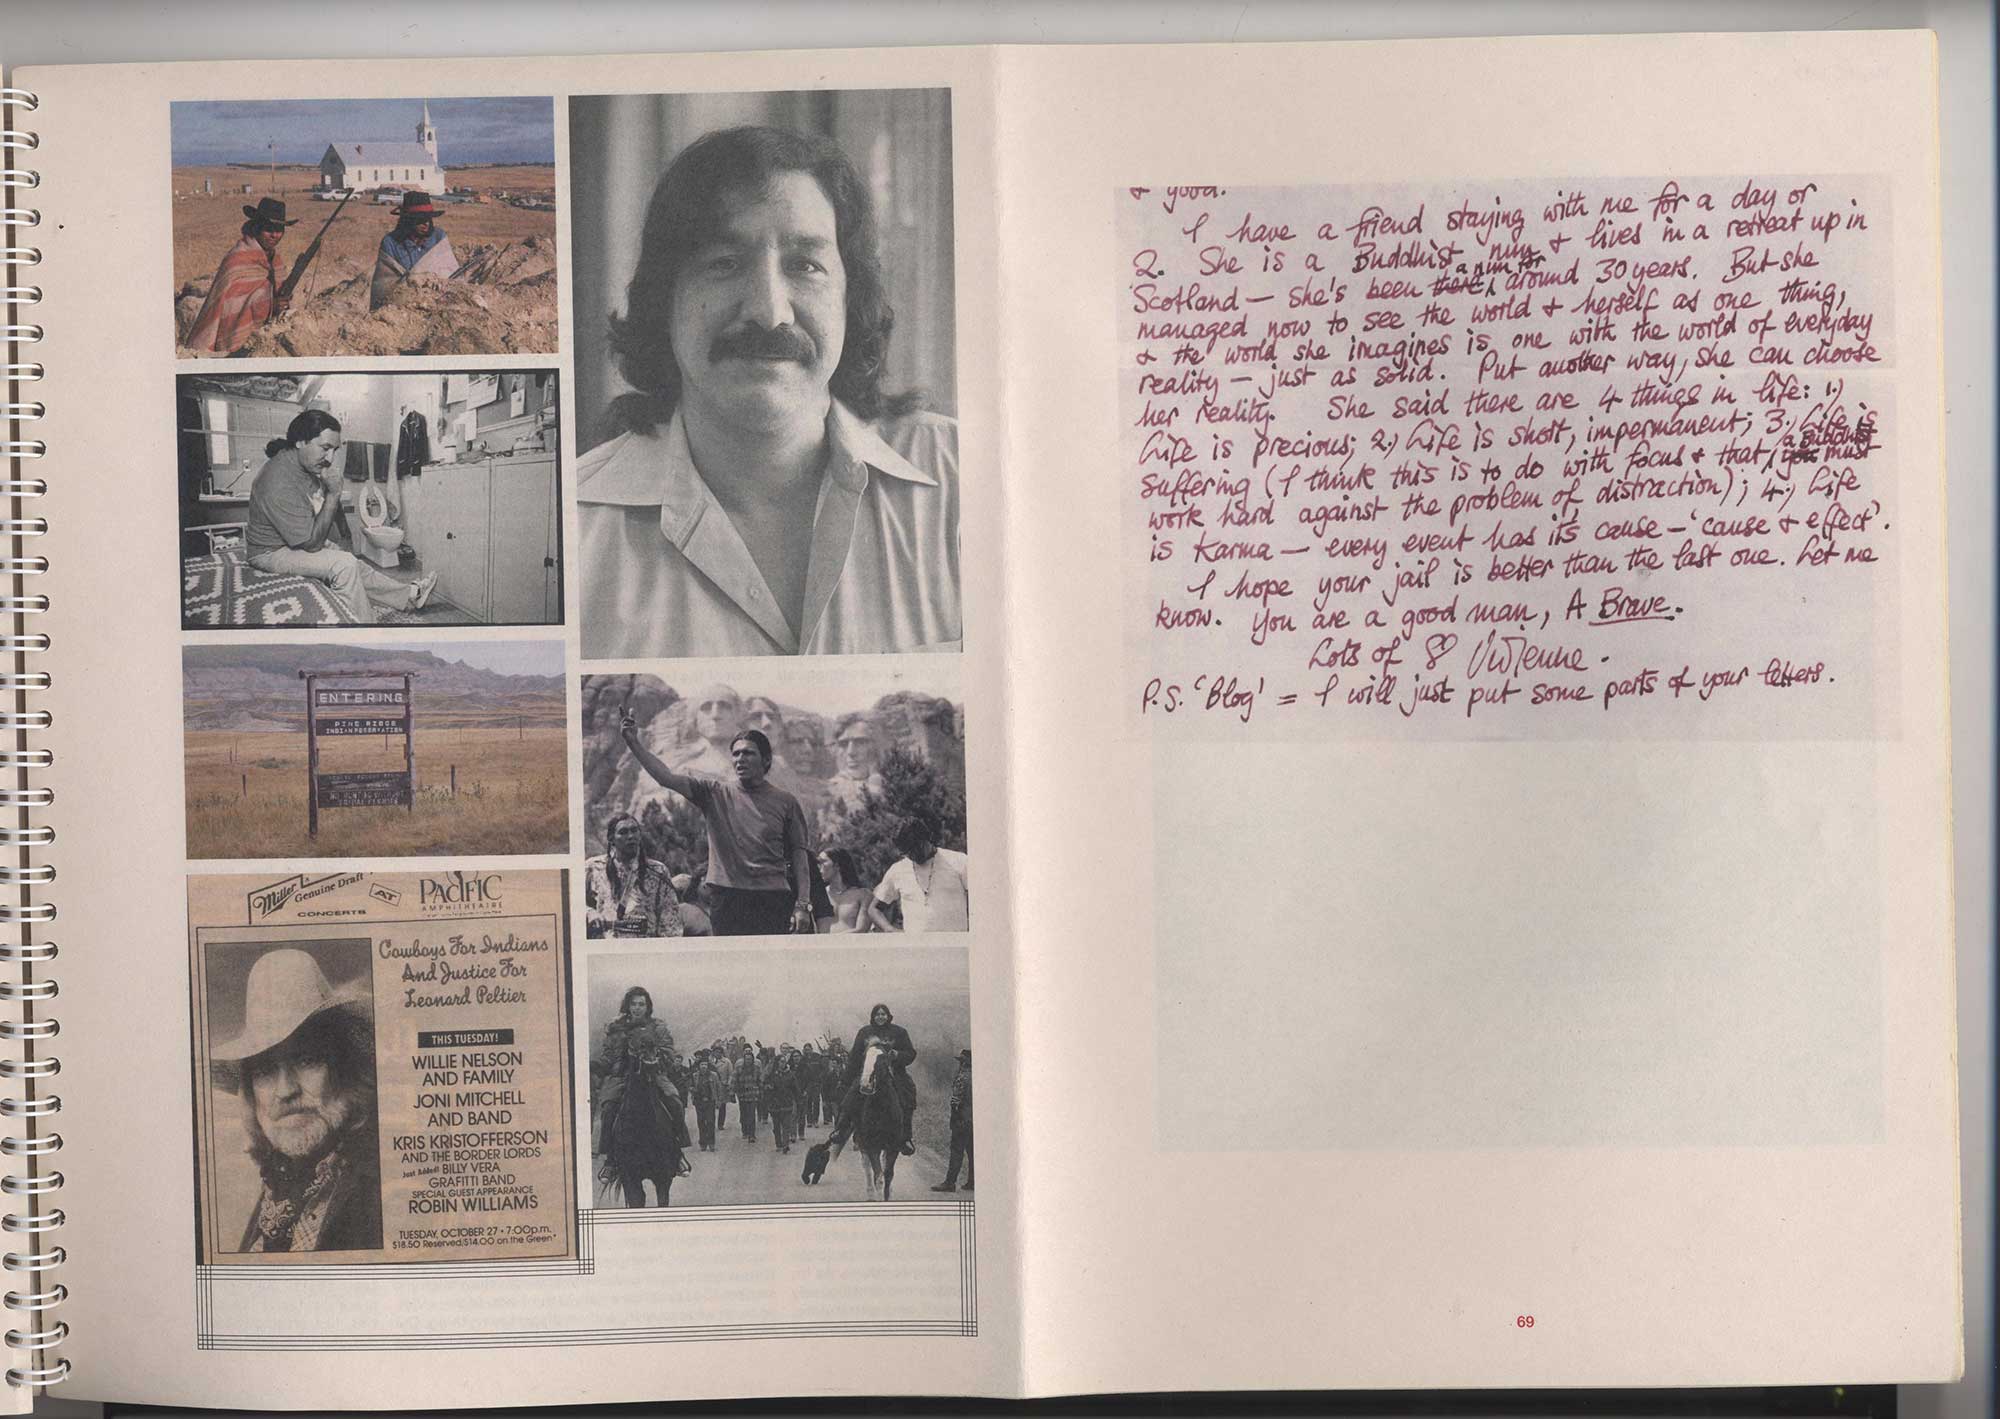 ENTERING
PINE RIDGE
INDIAN RESERVATION
Miller
Genuine Draft
CONCERTS
AT
PACIFIC
AMPHITHEATRE
Cowboys For Indians
And Justice For
Leonard Peltier
THIS TUESDAY!
WILLIE NELSON
AND FAMILY
JONI MITCHELL
AND BAND
KRIS KRISTOFFERSON
AND THE BORDER LORDS
Just Added! BILLY VERA
GRAFITTI BAND
SPECIAL GUEST APPEARANCE
ROBIN WILLIAMS
TUESDAY, OCTOBER 27 • 7:00p.m.
$18.50 Reserved/$14.00 on the Green*
& good.
I have a friend staying with me for a day or
2. She is a Buddhist nun & lives in a retreat up in
Scotland — she's been there a nun for around 30 years. But she
managed now to see the world & herself as one thing,
& the world she imagines is one with the world of everyday
reality — just as solid. Put another way, she can choose
her reality. She said there are 4 things in life: 1.)
Life is precious; 2.) Life is short, impermanent; 3.) Life is
suffering (I think this is to do with focus & that you a Buddhist must
work hard against the problem of distraction); 4.) Life
is Karma — every event has its cause — 'cause & effect'.
I hope your jail is better than the last one. Let me
know. You are a good man, A Brave.
Lots of ♡ Vivienne.
P.S. 'Blog' = I will just put some parts of your letters.
69